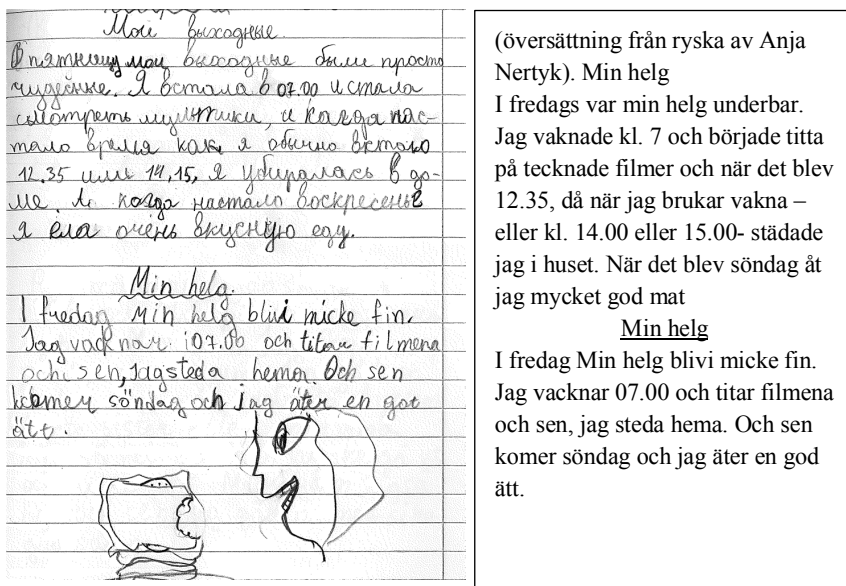 Мои выходные.
В пятницу мои выходные были просто
чудесные. Я встала в 07.00 и стала
смотреть мультики, и когда нас-
тало время как я обычно встаю
12.35 или 14,15, я убиралась в до-
ме. А когда настало воскресенье
я ела очень вкусную еду.
Min helg.
I fredag Min helg blivi micke fin.
Jag vacknar i07.00 och titar filmena
och sen, Jag steda hema. Och sen
komer söndag och jag äter en got
ätt.
(översättning från ryska av Anja
Nertyk). Min helg
I fredags var min helg underbar.
Jag vaknade kl. 7 och började titta
på tecknade filmer och när det blev
12.35, då när jag brukar vakna –
eller kl. 14.00 eller 15.00- städade
jag i huset. När det blev söndag åt
jag mycket god mat
Min helg
I fredag Min helg blivi micke fin.
Jag vacknar 07.00 och titar filmena
och sen, jag steda hema. Och sen
komer söndag och jag äter en god
ätt.